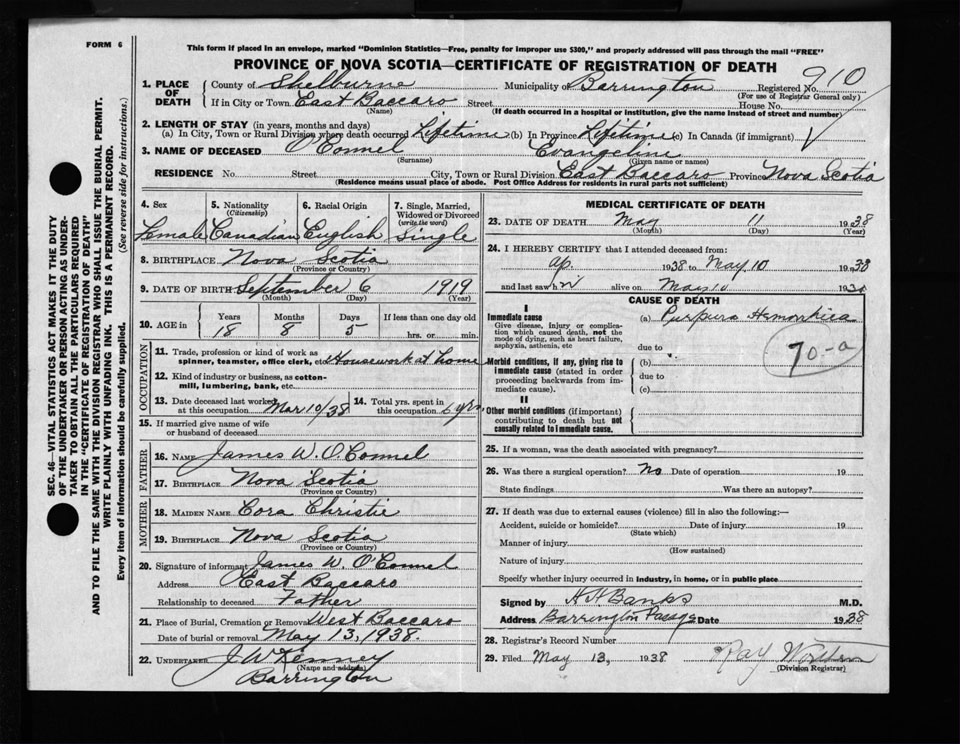 FORM 6
This form if placed in an envelope, marked "Dominion Statistics—Free, penalty for improper use $300," and properly addressed will pass through the mail "FREE"
PROVINCE OF NOVA SCOTIA—CERTIFICATE OF REGISTRATION OF DEATH
910
1. PLACE OF DEATH
County of Shelburne Municipality of Barrington Registered No.
(For use of Registrar General only)
If in City or Town East Baccaro Street House No.
(Name) (If death occurred in a hospital or institution, give the name instead of street and number)
2. LENGTH OF STAY (in years, months and days)
(a) In City, Town or Rural Division where death occurred Lifetime (b) In Province Lifetime (c) In Canada (if immigrant)
3. NAME OF DECEASED O'Connel Evangeline
(Surname) (Given name or names)
RESIDENCE No. Street City, Town or Rural Division East Baccaro Province Nova Scotia
(Residence means usual place of abode. Post Office Address for residents in rural parts not sufficient)
4. Sex
Female
5. Nationality
(Citizenship)
Canadian
6. Racial Origin
English
7. Single, Married, Widowed or Divorced
(write the word)
Single
8. BIRTHPLACE Nova Scotia
(Province or Country)
9. DATE OF BIRTH September 6 1919
(Month) (Day) (Year)
10. AGE in
Years Months Days If less than one day old
18 8 5 hrs. or min.
OCCUPATION
11. Trade, profession or kind of work as
spinner, teamster, office clerk, etc. Housework at home
12. Kind of industry or business, as cotton-
mill, lumbering, bank, etc.
13. Date deceased last worked
at this occupation Mar 10/38
14. Total yrs. spent in
this occupation 2 yrs.
15. If married give name of wife
or husband of deceased
FATHER
16. NAME James W. O'Connel
17. BIRTHPLACE Nova Scotia
(Province or Country)
MOTHER
18. MAIDEN NAME Cora Christie
19. BIRTHPLACE Nova Scotia
(Province or Country)
20. Signature of informant James W. O'Connel
Address East Baccaro
Relationship to deceased Father
21. Place of Burial, Cremation or Removal West Baccaro
Date of burial or removal May 13, 1938.
22. UNDERTAKER J W Kenney
(Name and address)
Barrington
MEDICAL CERTIFICATE OF DEATH
23. DATE OF DEATH May 11 1938
(Month) (Day) (Year)
24. I HEREBY CERTIFY that I attended deceased from:
Ap. 1938 to May 10 1938
and last saw h alive on May 10 193
CAUSE OF DEATH
I
Immediate cause
Give disease, injury or complication which caused death, not the mode of dying, such as heart failure, asphyxia, asthenia, etc
(a) Purpura Hemorrhica
due to
70-a
Morbid conditions, if any, giving rise to immediate cause (stated in order proceeding backwards from immediate cause).
(b)
due to
(c)
II
Other morbid conditions (if important) contributing to death but not causally related to immediate cause.
25. If a woman, was the death associated with pregnancy?
26. Was there a surgical operation? No Date of operation 19
State findings Was there an autopsy?
27. If death was due to external causes (violence) fill in also the following:—
Accident, suicide or homicide? Date of injury 19
(State which)
Manner of injury
(How sustained)
Nature of injury
Specify whether injury occurred in industry, in home, or in public place
Signed by H H Banks M.D.
Address Barrington Passage Date 1938
28. Registrar's Record Number
29. Filed May 13, 1938 Ray
(Division Registrar)
SEC. 46—VITAL STATISTICS ACT MAKES IT THE DUTY
OF THE UNDERTAKER OR PERSON ACTING AS UNDER-
TAKER TO OBTAIN ALL THE PARTICULARS REQUIRED
IN THE "CERTIFICATE OF REGISTRATION OF DEATH"
AND TO FILE THE SAME WITH THE DIVISION REGISTRAR WHO SHALL ISSUE THE BURIAL PERMIT.
WRITE PLAINLY WITH UNFADING INK. THIS IS A PERMANENT RECORD.
Every item of information should be carefully supplied. (See reverse side for instructions.)